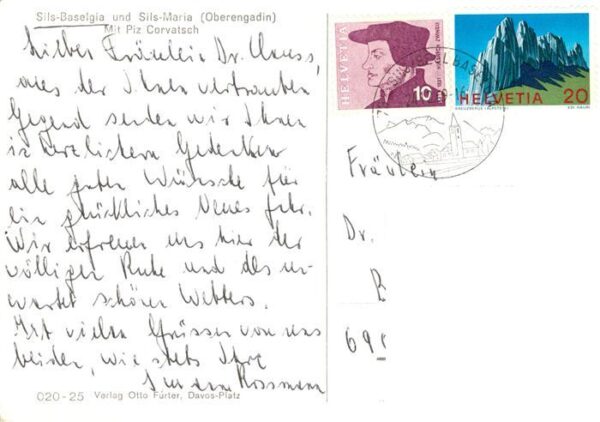 Sils-Baselgia und Sils-Maria (Oberengadin)
Mit Piz Corvatsch
Fräulein Dr. Clauss,
aus der Ihnen vertrauten
Gegend senden wir Ihnen
in herzlichem Gedenken
alle guten Wünsche für
ein glückliches Neues Jahr.
Wir erfreuen uns hier der
völligen Ruhe und des un-
erwartet schönen Wetters.
Mit vielen Grüssen von uns
beiden, wie stets Ihre
Rossmann
020-25 Verlag Otto Furter, Davos-Platz
HELVETIA
10
HELVETIA 20
Fräulein
Dr.
69